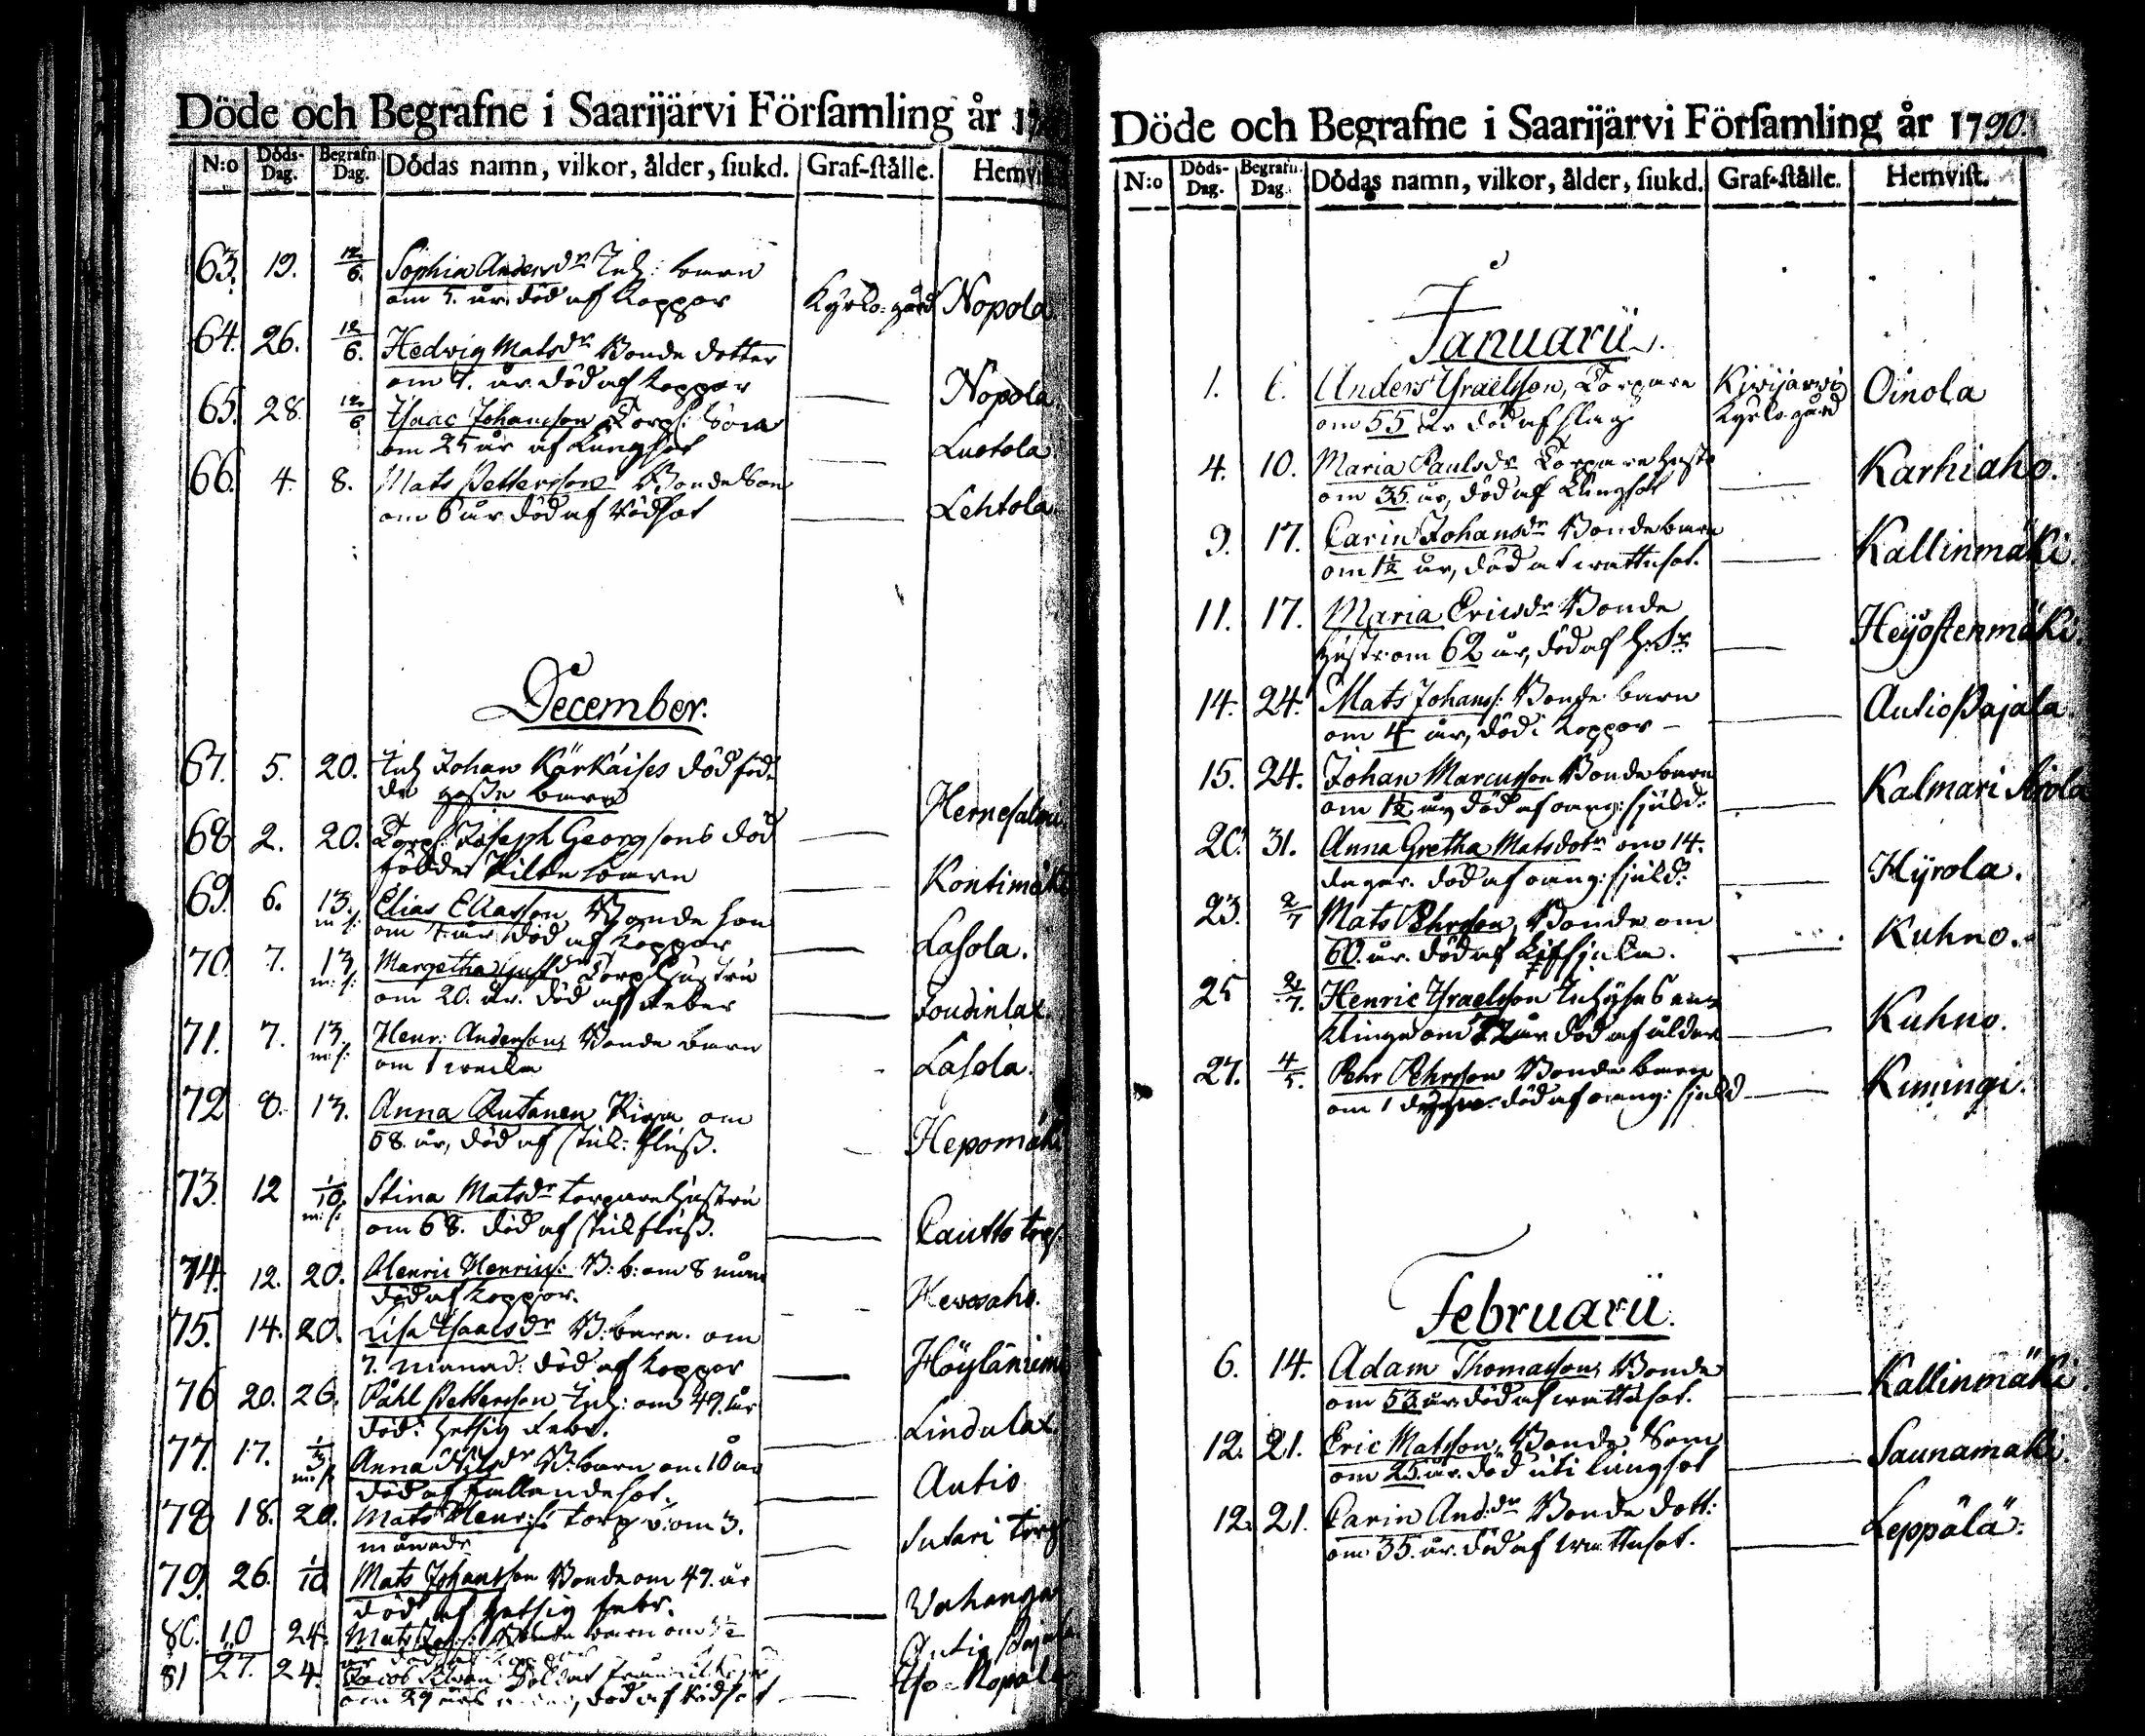 Döde och Begrafne i Saarijärvi Förſamling år 17
N:o Döds-Dag. Begrafn. Dag. Dödas namn, vilkor, ålder, ſiukd. Graf-ſtälle. Hemvi
63. 19. 12/6. Sophia Andersdr Inh: barn
om 5. år död af koppor Kyrko-gård Nopola
64. 26. 12/6. Hedvig Matsdr Bonde dotter
om 7. år död af koppor Nopola
65. 28. 12/6 Isaac Johansson Torp: Son
om 25 år af Lungsot Luotola
66. 4. 8. Mats Pettersson Bonde Son
om 6 år död af Rödsot Lehtola
December.
67. 5. 20. Inh Johan Kärkäises död föd-
de barn
68 2. 20. Torp: Joseph Georgsons död
födde barn Kontimäki
69. 6. 13. m: s: Elias Eliasson Bonde son
om år död af koppor Lasola.
70. 7. 13 m: s: Margetha dr Torp Hustru
om 20. år. död af feber
71. 7. 13 m: s: Henr: Andersons Bonde barn
om 1 wecka Lasola.
72 8. 13. Anna Rutanen Piga om
58. år, död af Hepomäki
73. 12 1/10 m: s: Stina Matsdr torpare Hustru
om 68. död af
74. 12. 20. Henric Henrics: B: b: om 8 mån
död af koppor.
75. 14. 20. Lisa Isaacsdr B: barn. om
7. månad: död af koppor
76 20. 26. Påhl Pettersson Inh: om 49. år
död: hetsig feber. Lindulax
77. 17. m: s: Anna Nilsdr B: barn om 10 år
död af fallandesot. Autio
78 18. 20. Mats Henr: s: torp om 3.
månader Sutari torp
79. 26. 1/10 Mats Johansson Bonde om 47. år
död af hetsig feber. Vahanga
80. 10 24. Mats Bonde barn om
år död af koppor
81 27. 24. Jacob Soldat
om 29 år död af Rödsot
Döde och Begrafne i Saarijärvi Förſamling år 1790.
N:o Döds-Dag. Begrafn. Dag. Dödas namn, vilkor, ålder, ſiukd. Graf-ſtälle. Hemviſt.
Januarii.
1. 6. Anders Israelsson, Torpare Kivijärvi Oinola
om 55 år död af slag Kyrko-gård
4. 10. Maria Paulsdr Torpare Hustr
om 35. år, död af Lungsot Karhiaho.
9. 17. Carin Johansdr Bonde barn
om 1½ år, död af wattusot. Kallinmäki.
11. 17. Maria Ericsdr Bonde
Hustr: om 62 år, död af Heÿostenmäki.
14. 24. Mats Johans: Bonde barn
om 4 år, död: koppor — Autio Pajala
15. 24. Johan Marcusson Bonde barn
om 1½ år död af oang: sjukd: Kalmari
20. 31. Anna Gretha Matsdotr om 14.
dagar. död af oang: sjukd: Hÿrola.
23. 2/7 Mats Pehrsson, Bonde om
60. år. död af Kuhno.
25 2/7. Henric Israelsson Inhyses
om 72 år död af ålder Kuhno.
27. 4/5. Pehr Pehrsson Bonde barn
om 1 död af oang: sjukd Kimingi.
Februarii.
6. 14. Adam Thomasson, Bonde
om 53 år död af wattusot. Kallinmäki.
12. 21. Eric Matsson, Bonde Son
om 25. år. död uti lungsot Saunamäki.
12. 21. Carin And: dr Bonde dott:
om 35. år. död af wattusot. Leppälä: